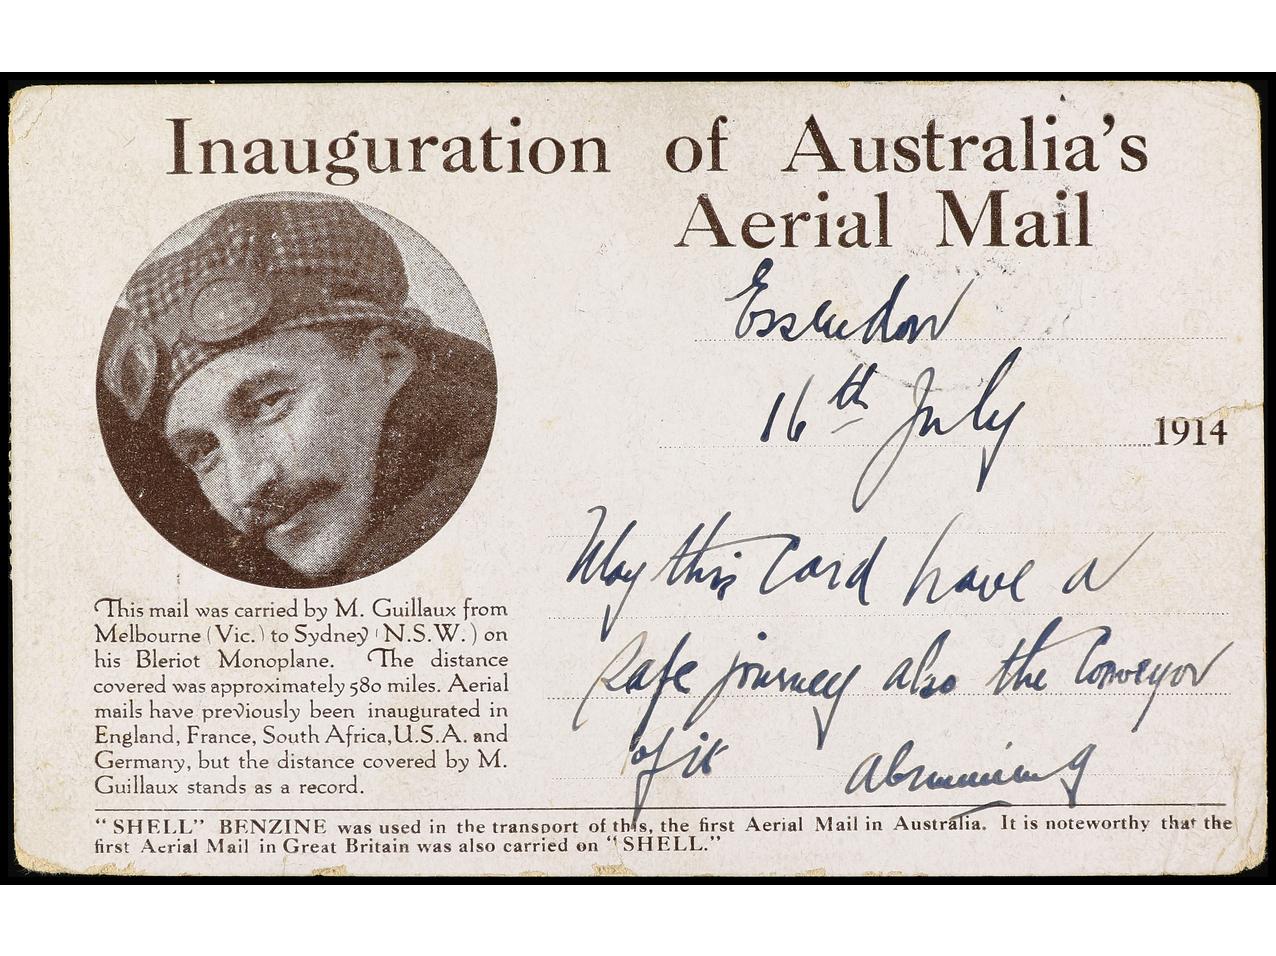 Inauguration of Australia's
Aerial Mail
Essendon
16th July 1914
May this card have a
safe journey also the Conveyor
of it
This mail was carried by M. Guillaux from
Melbourne (Vic.) to Sydney (N.S.W.) on
his Bleriot Monoplane. The distance
covered was approximately 580 miles. Aerial
mails have previously been inaugurated in
England, France, South Africa, U.S.A. and
Germany, but the distance covered by M.
Guillaux stands as a record.
"SHELL" BENZINE was used in the transport of this, the first Aerial Mail in Australia. It is noteworthy that the
first Aerial Mail in Great Britain was also carried on "SHELL."